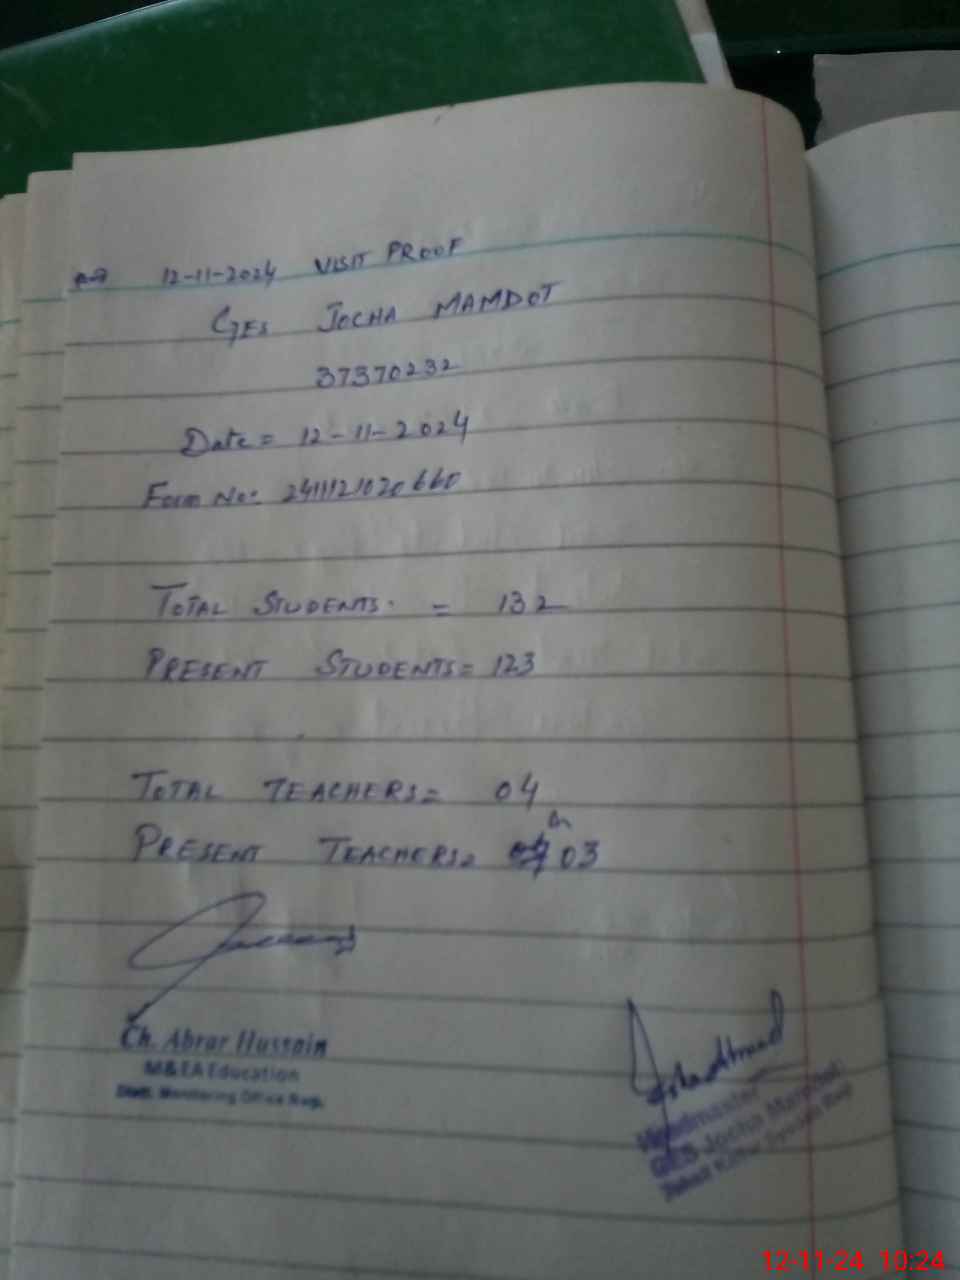 12-11-2024 VISIT PROOF
GES JOCHA MAMDOT
37370232
Date = 12-11-2024
Form No: 2411121020660
TOTAL STUDENTS. = 132
PRESENT STUDENTS= 123
TOTAL TEACHERS= 04
PRESENT TEACHERS= 03
Ch. Abrar Hussain
M&EA Education
Distt. Monitoring Office Rwp.
Headmaster
GES Jocha Mamdot
12-11-24 10:24